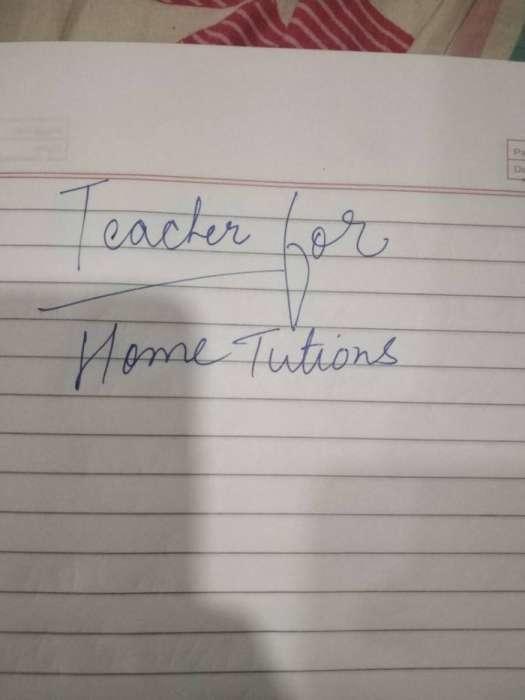 Teacher for
Home Tutions